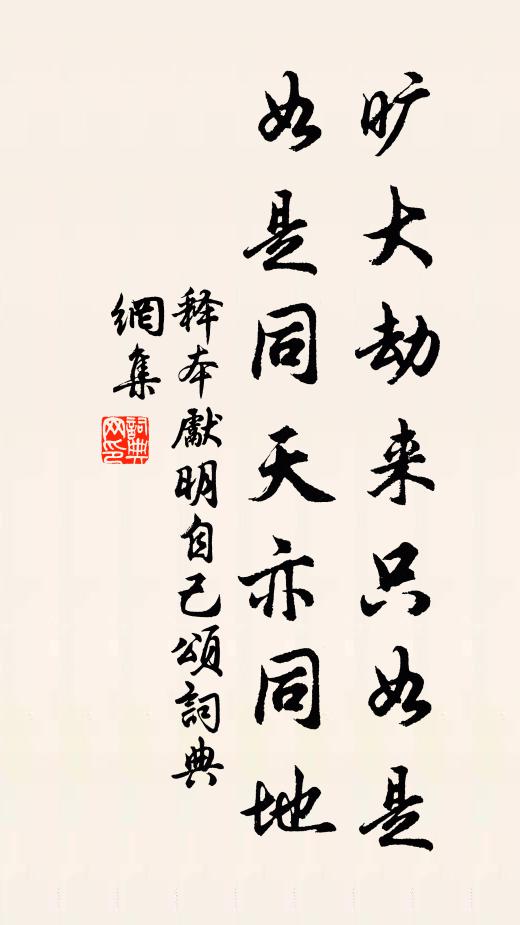 旷大劫来只如是
如是同天亦同地
释本獻明自己頌詞典
網集
詞典
网印